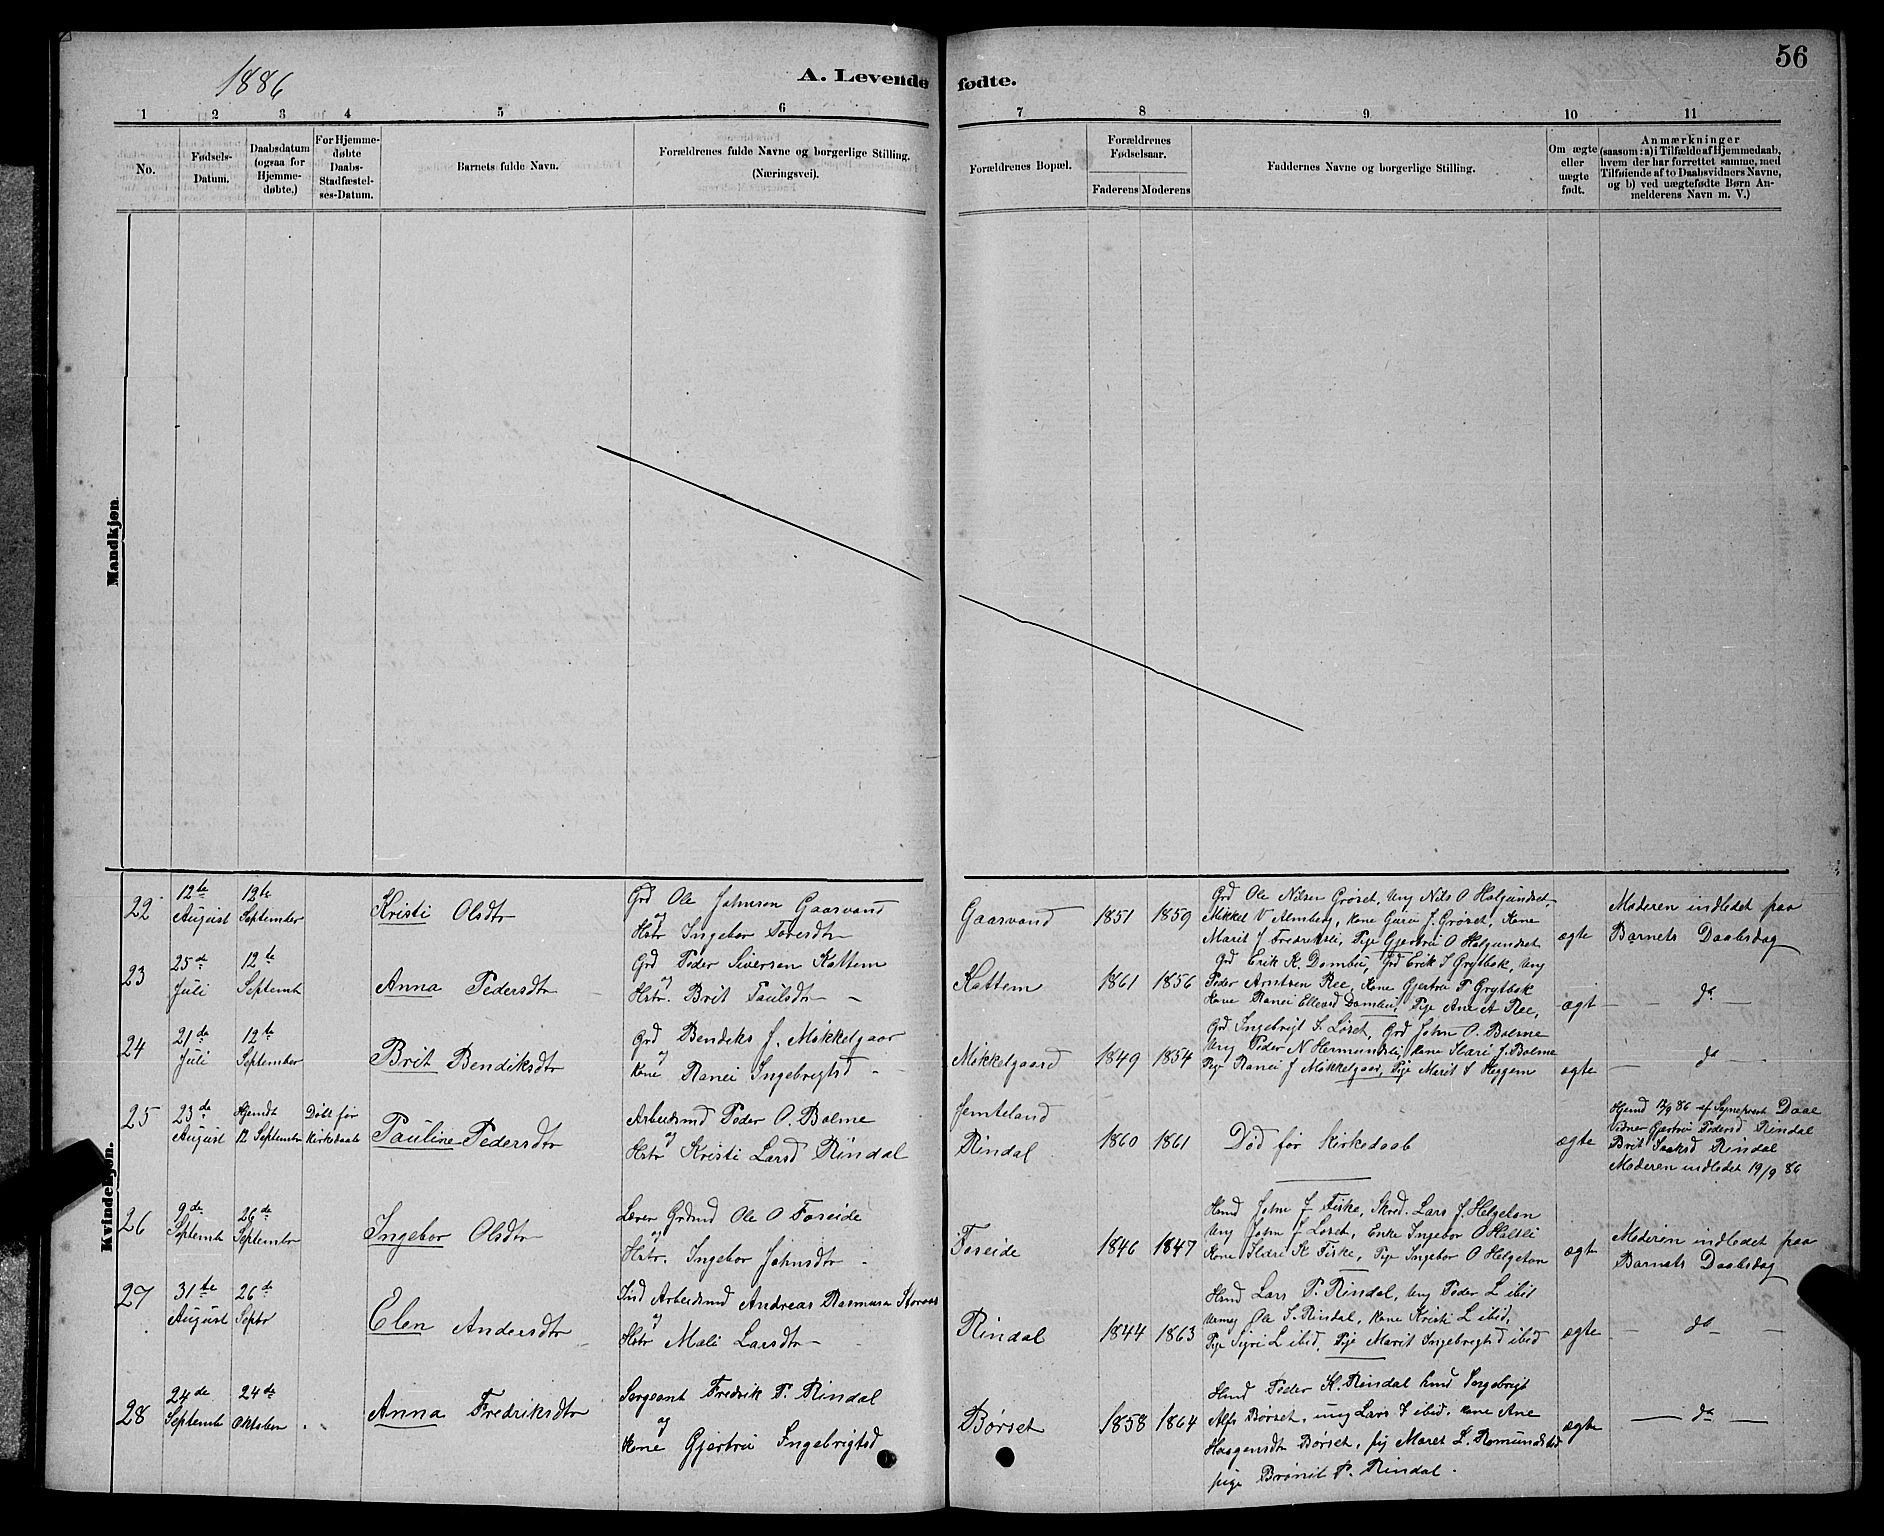 1886
A. Levende fødte.
56
1 2 3 4 5 6 7 8 9 10 11
No.
Fødsels-
Datum.
Daabsdatum
(ogsaa for
Hjemme-
døbte.)
For Hjemme-
døbte
Daabs-
Stadfæstel-
ses-Datum.
Barnets fulde Navn.
Forældrenes fulde Navne og borgerlige Stilling.
(Næringsvei).
Forældrenes Bopæl.
Forældrenes
Fødselsaar.
Faderens Moderens
Faddernes Navne og borgerlige Stilling.
Om ægte
eller
uægte
født.
Anmærkninger
(saasom: a) i Tilfælde af Hjemmedaab,
hvem der har forrettet samme, med
Tilføiende af to Daabsvidners Navne,
og b) ved uægtefødte Børn An-
melderens Navn m. V.)
Mandkjøn
Kvindekjøn.
22
12te
August
12te
September
Kristi Olsdtr
Grd Ole Johnsen Gaasvand
og
Hstr Ingebor Toresdtr
Gaasvand
1851 1859
Grd Ole Nilsen Grøset, Ung Nils O Halgunset,
Mikkel V Almberg, Kone Guru J. Grøset, Kone
Marit J Fredriksli, Pige Gjertru O Halgunset
ægte
Moderen indledet paa
Barnets Daabsdag
23
25de
Juli
12te
Septemb
Anna Pedersdtr
Grd Peder Siversen Kattem
og
Hstr. Brit Paulsdtr
Kattem
1861 1856
Grd Erik K. Dombu, Grd Erik I Grytbak, Ung
Peder Arntsen Ree, Kone Gjertru P Grytbak
Kone Ranei Ellevd Dombu, Pige Ane A Ree,
ægt
— do
24
21de
Juli
12te
September
Brit Bendiksdtr
Grd Bendiks J. Mikkelgaar
og
Kone Ranei Ingebrigtsd
Mikkelgaard
1849 1854
Grd Ingebrigt S. Løset, Grd John O. Bolme
Ung Peder N Hermundsli, Kone Kari J. Bolme
Pige Ranei J Mikkelgaar, Pige Marit S Heggem
ægte
— do —
25
23de
August
Hjemdt
12 September
Død før
Kirkedaab
Pauline Pedersdtr
Arbeidsmd Peder O. Bolme
og
Hstr Kristi Larsd Rindal
Jemteland
Rindal
1860 1861
Død før Kirkedaab
ægte
Hjemd 12/9 86 af Sognepræst Daae
Vidner Gjertru Pedersd Rindal
Brit Isaksd Rindal
Moderen indledet 19/9 86
26
9de
Septemb
26de
Septembr
Ingebor Olsdtr
Lærer Grdmd Ole O Foseide
og
Hstr. Ingebor Johnsdtr
Foseide
1846 1847
Hmd John J Fiske, Skrd. Lars J. Helgeton
Ung John J Løset, Enke Ingebor O Haltli
Kone Kari K Fiske, Pige Ingebor O Helgeton
ægt
Moderen indledet paa
Barnets Daabsdag
27
31te
August
26de
Septbr
Elen Andersdtr
Ind Arbeidsmd Andreas Rasmusn Storaas
og
Hstr Mali Larsdtr
Rindal
1844 1863
Hmd Lars P. Rindal, Ung Peder L ibid
Ung Ole S. Rindal, Kone Kristi L ibid,
Pige Sigri L ibid, Pige Marit Ingebrigtsd ibid
ægte
— do —
28
24de
Septemb
24de
Oktober
Anna Fredriksdtr
Sergeant Fredrik P. Rindal
og
Kone Gjertru Ingebrigtsd
Børset
1858 1864
Hmd Peder K. Rindal hmd Ingebrigt
Alfs Børset, ung Lars I ibid, Kone Ane
Haagensdtr Børset, pig Maret L. Romundstad
pige Brønil P. Rindal.
ægte
— do —